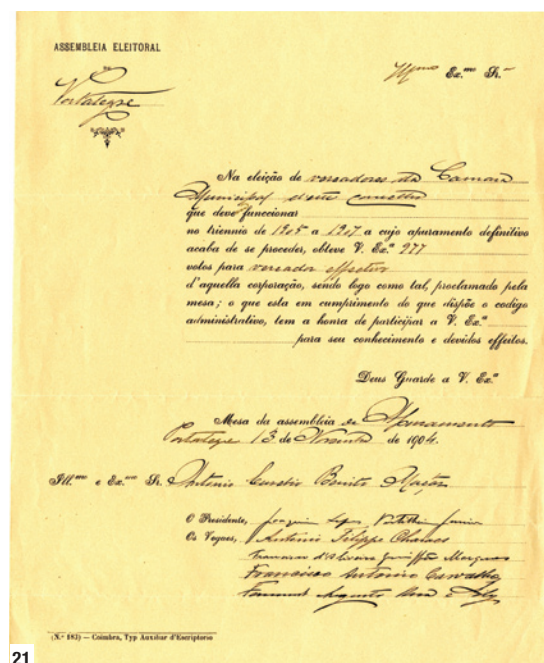 ASSEMBLEIA ELEITORAL
Portalegre
Illmo Ex.mo Sr.
Na eleição de vereadores da Camara
Municipal d'este concelho
que deve funccionar
no triennio de 1905 a 1907 a cujo apuramento definitivo
acaba de se proceder, obteve V. Ex.ª 977
votos para vereador effectivo
d'aquella corporação, sendo logo como tal, proclamado pela
mesa; o que esta em cumprimento do que dispõe o codigo
administrativo, tem a honra de participar a V. Ex.ª
para seu conhecimento e devidos effeitos.
Deus Guarde a V. Ex.ª
Mesa da assembleia de Apuramento
Portalegre 13 de Novembro de 1904.
Ill.mo e Ex.mo Sr. Antonio Eusebio Benito Maçãs
O Presidente, Joaquim Lopes Portilheiro Junior
Os Vogaes, Antonio Filippe Chaves
Francisco d'Oliveira Marques
Francisco Antonio Carvalho
Augusto
(N.º 182) — Coimbra, Typ Auxiliar d'Escriptorio
21